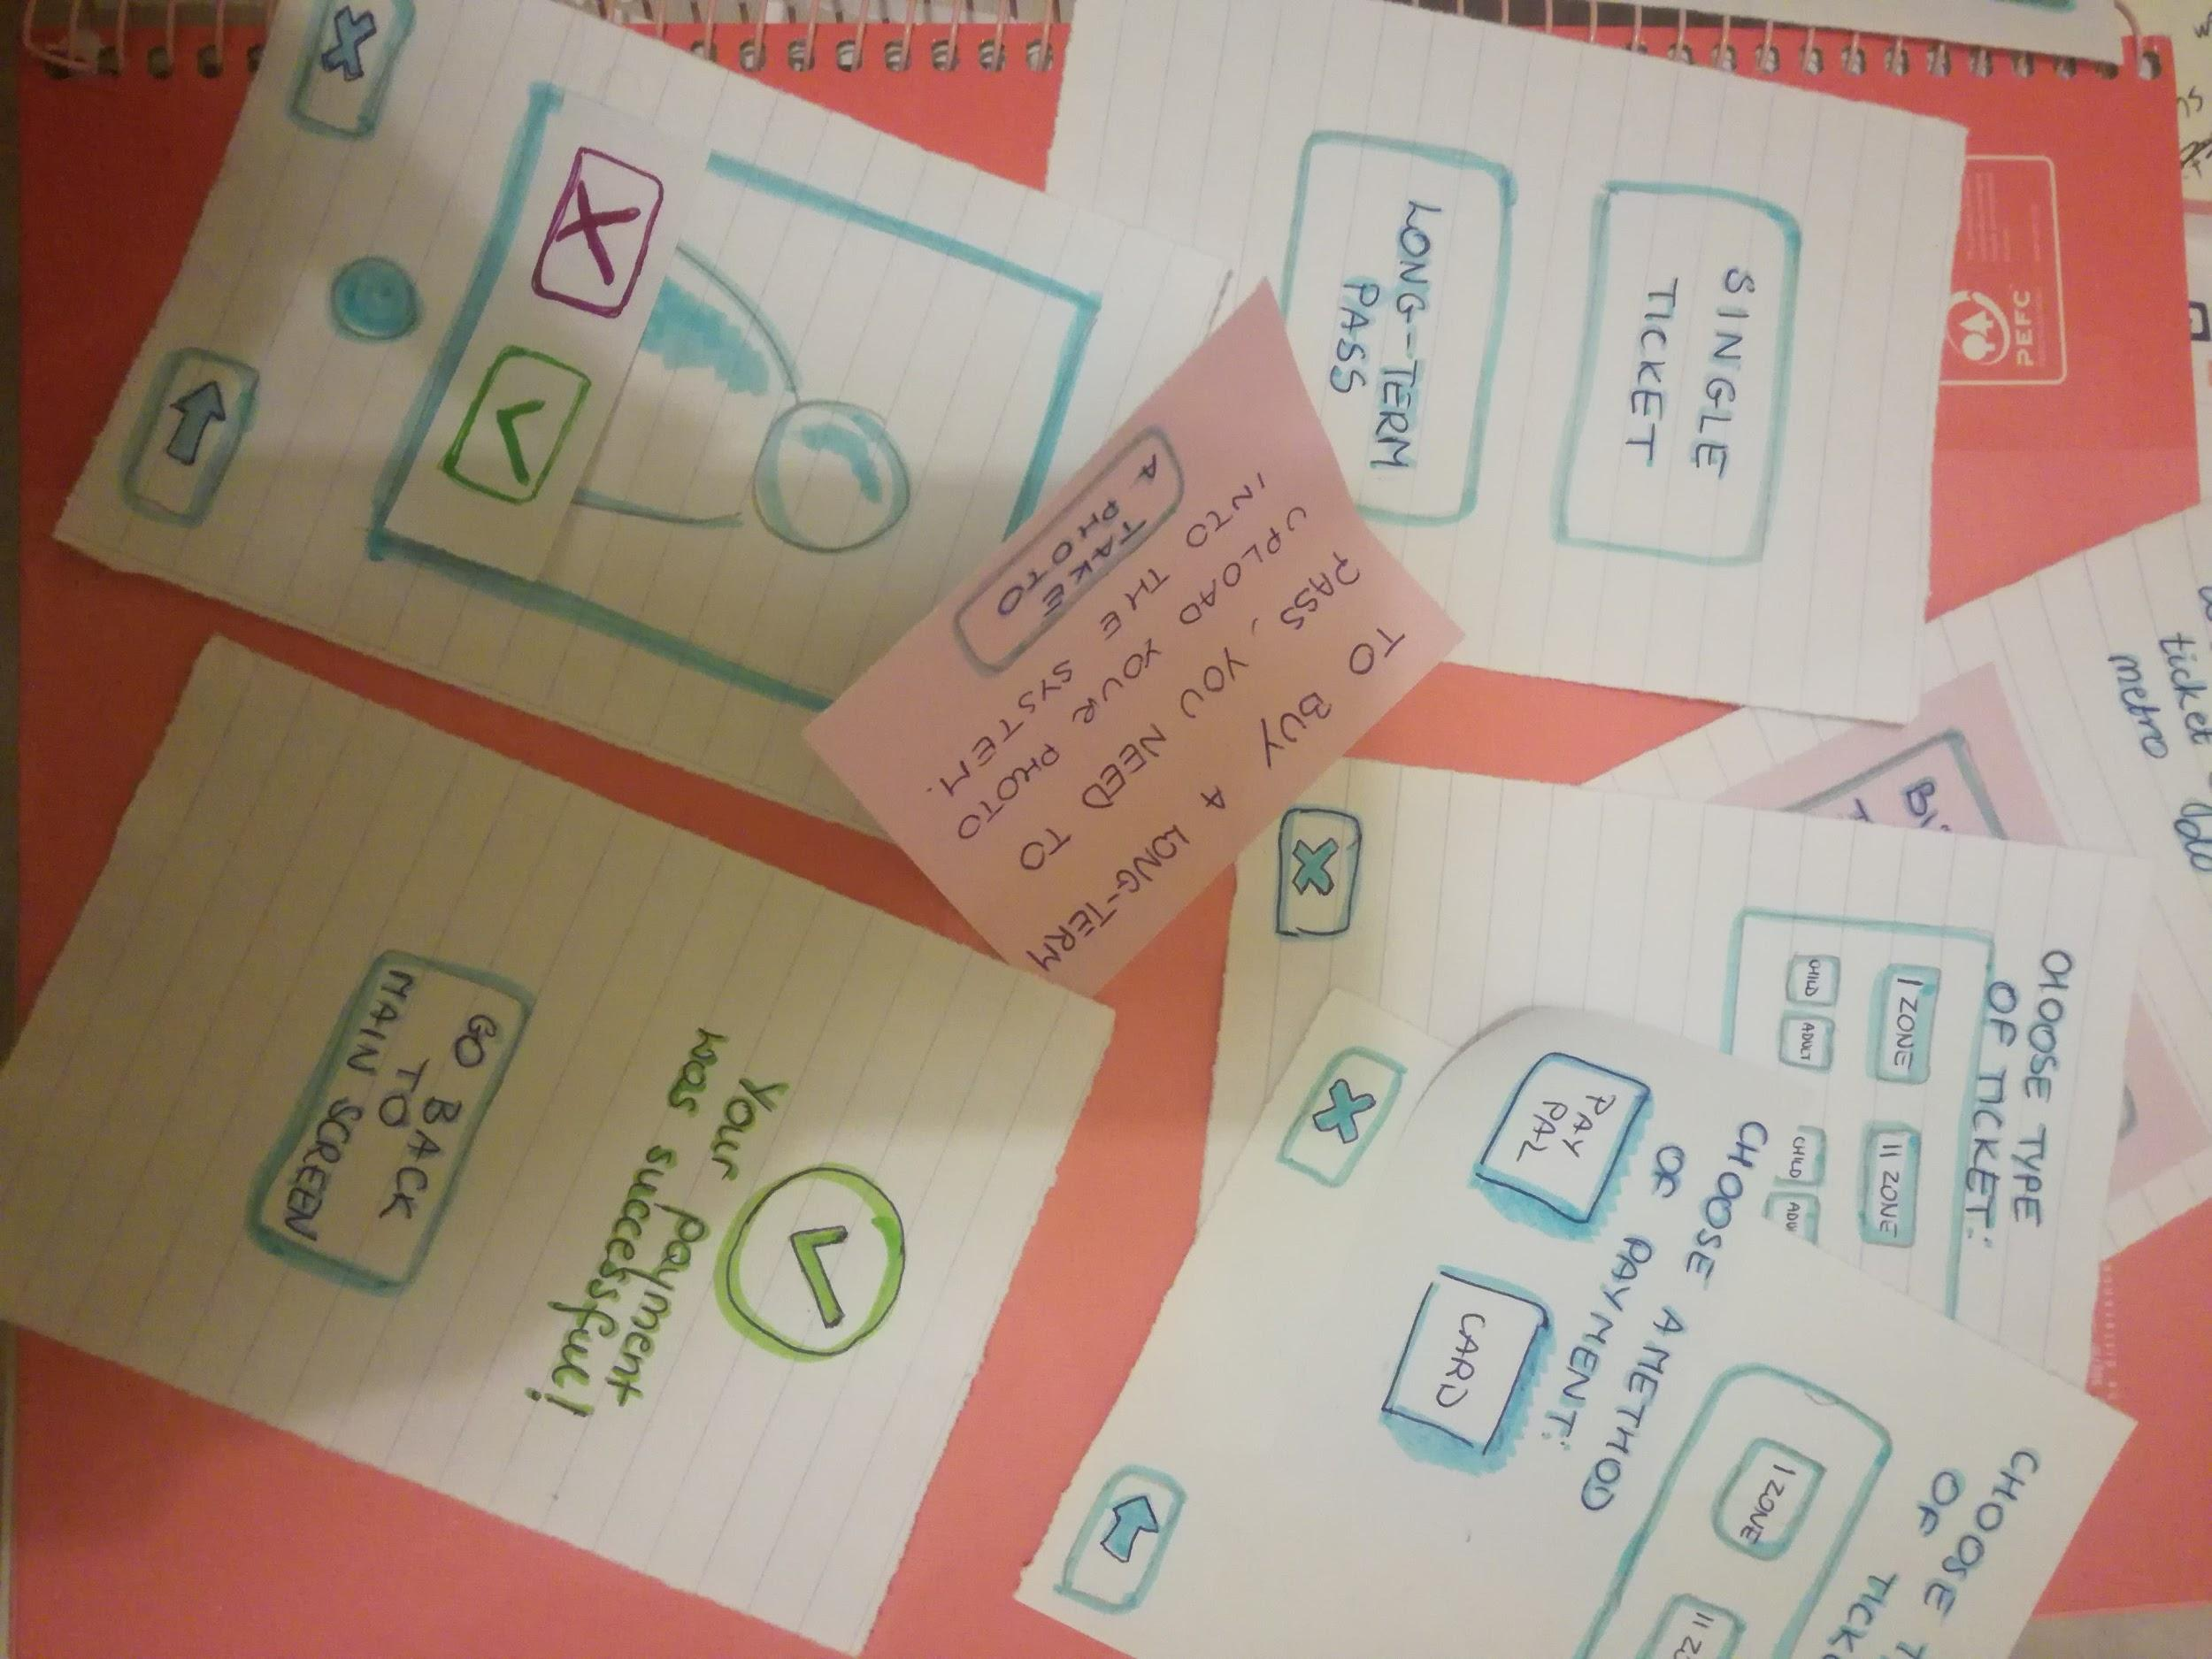 SINGLE
TICKET
LONG-TERM
PASS
PEFC
TO BUY A LONG-TERM
PASS, YOU NEED TO
UPLOAD YOUR PHOTO
INTO THE SYSTEM.
TAKE
A PHOTO
ticket
metro
CHOOSE TYPE
OF TICKET:
I ZONE
II ZONE
CHILD
ADULT
CHILD
ADU
CHOOSE A METHOD
OF PAYMENT:
PAY
PAL
CARD
CHOOSE T
OF TICK
I ZONE
II Z
Your payment
was successful!
GO BACK
TO
MAIN SCREEN